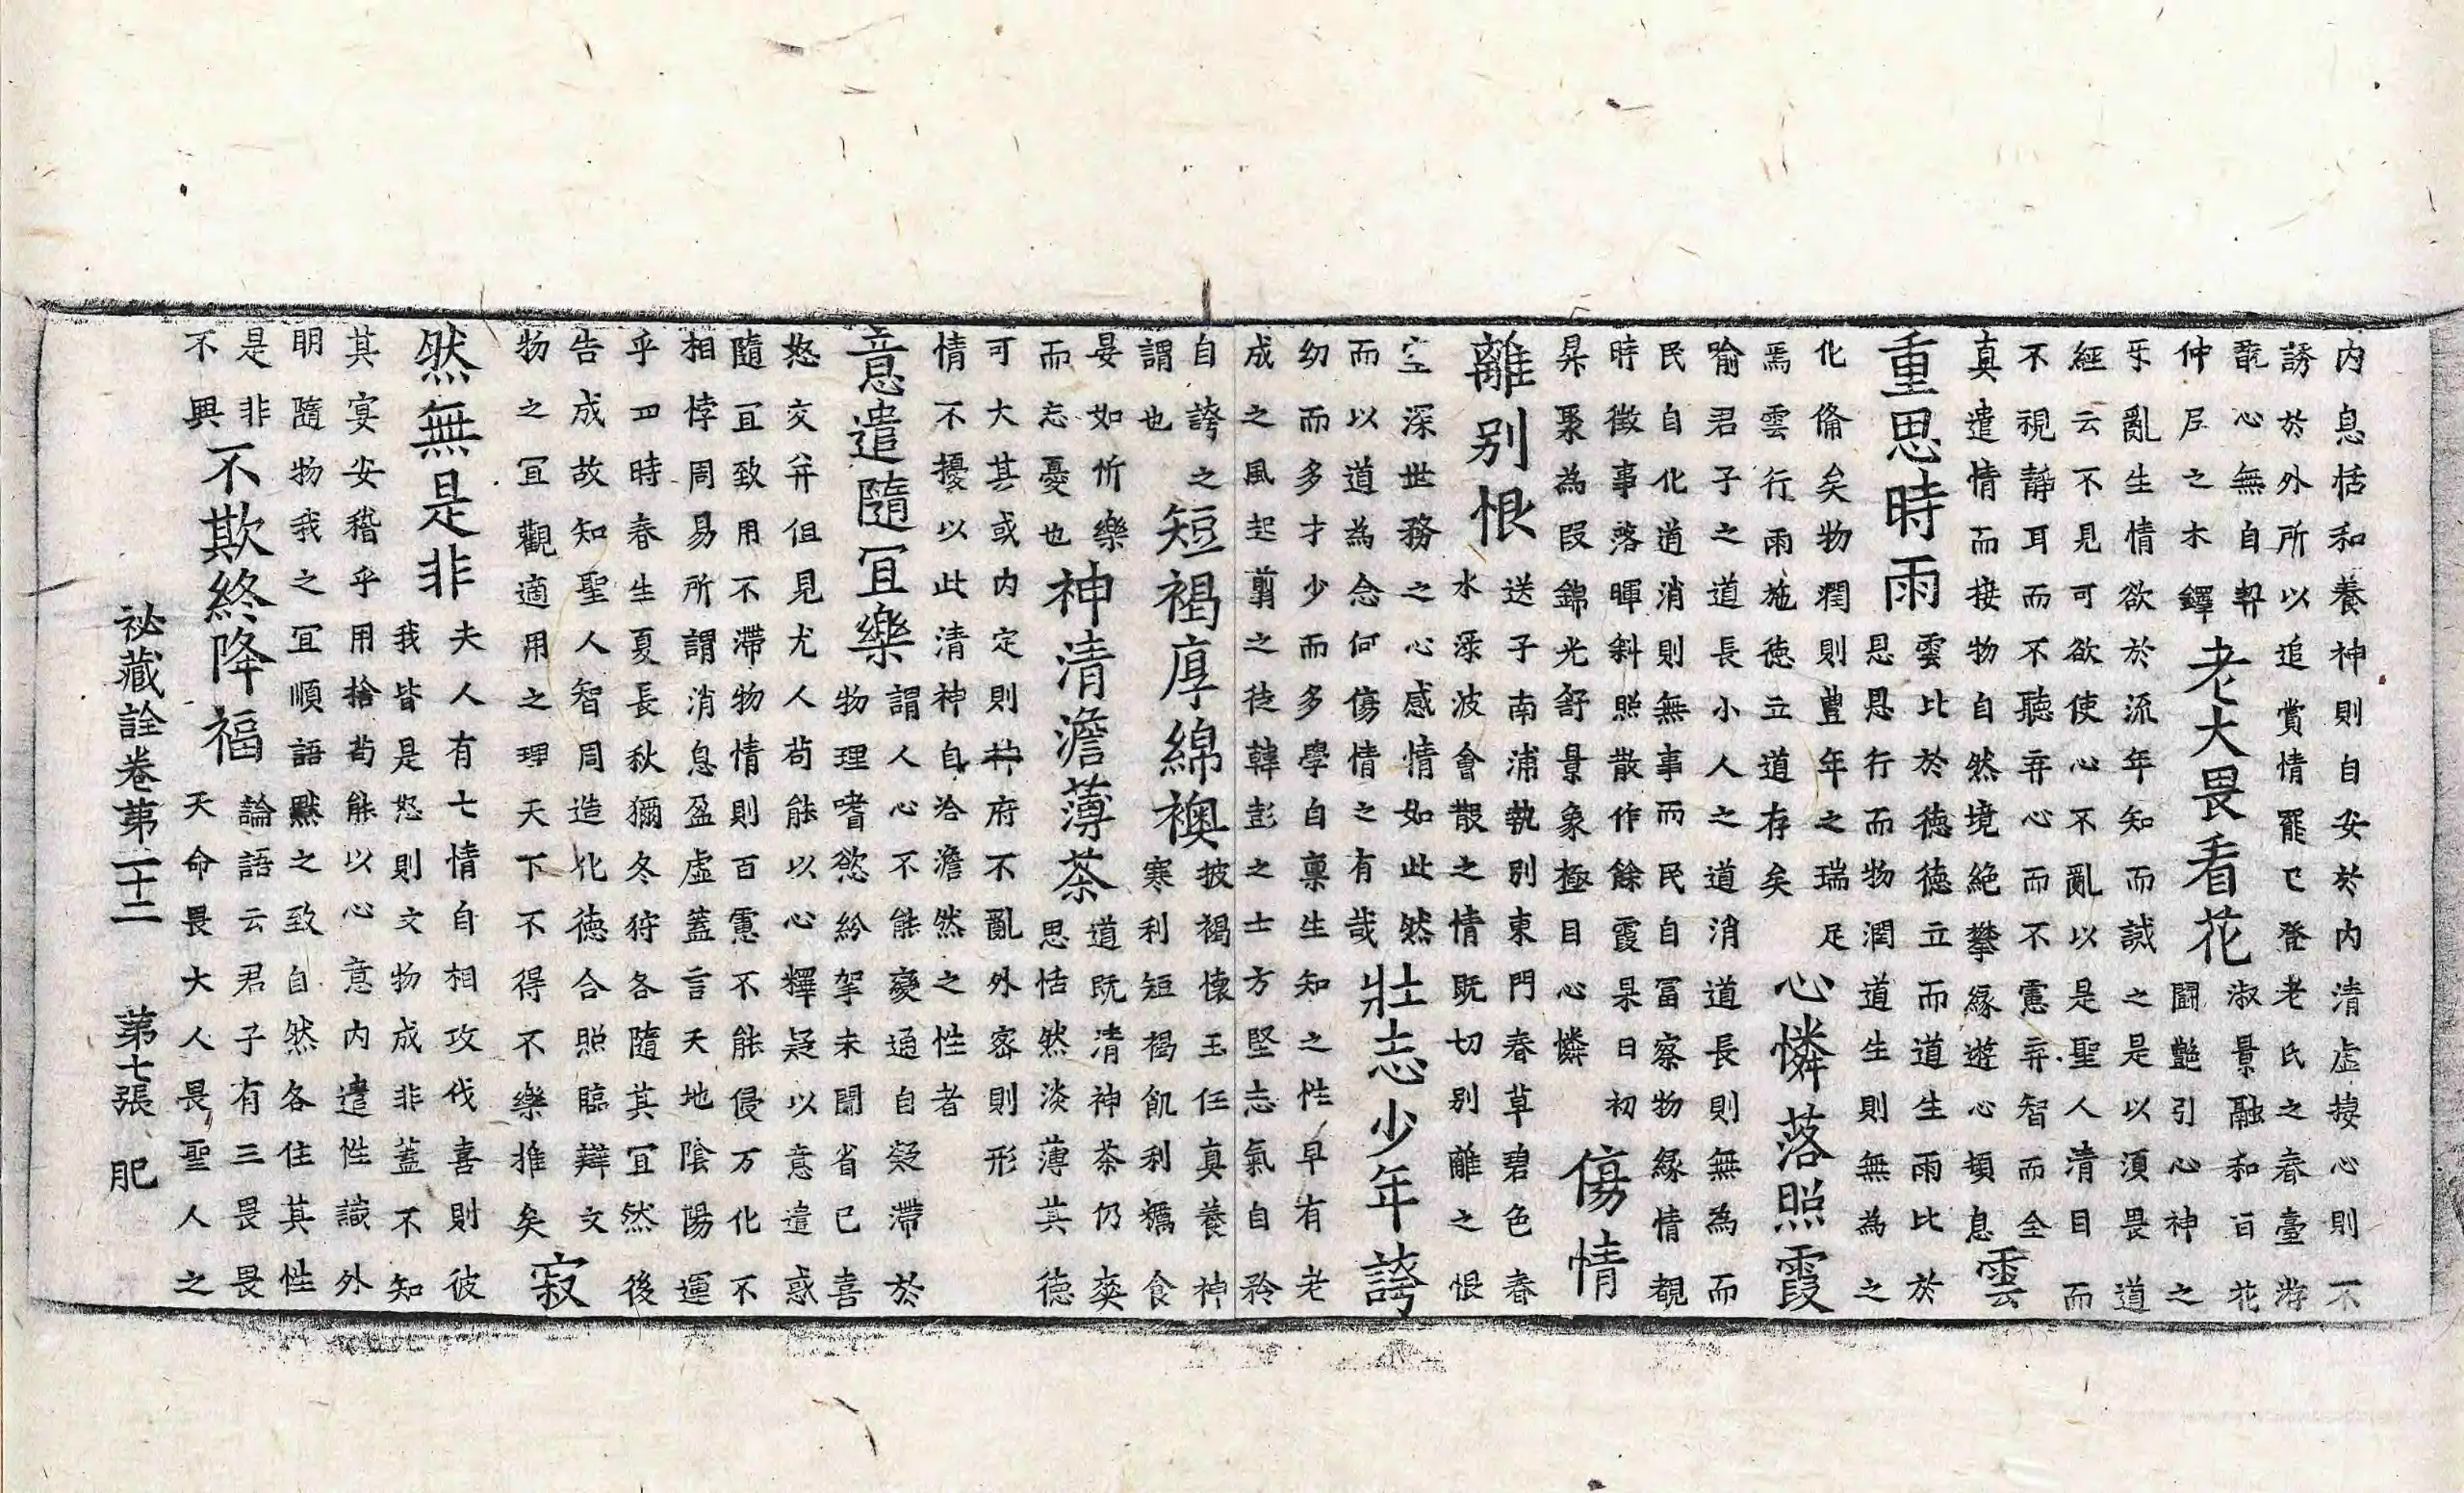 内息恬和養神則自安於内清虚接心則不
誘於外所以追賞情罷已登老氏之春臺游
翫心無自契
仲尼之木鐸
老大畏看花
淑景融和百花
鬪艷引心神之
乎亂生情欲於流年知而誡之是以須畏道
經云不見可欲使心不亂以是聖人清目而
不視靜耳而不聽弃心而不慮弃智而全
真遣情而接物自然境絶攀緣遊心頓息
雲
重思時雨
雲比於德德立而道生雨比於
恩恩行而物潤道生則無為之
化俻矣物潤則豐年之瑞足
焉雲行雨施德立道存矣
心憐落照霞
喻君子之道長小人之道消道長則無為而
民自化道消則無事而民自冨察物緣情覩
時徵事落暉斜照散作餘霞杲日初
昇聚為叚錦光舒景象極目心憐
傷情
離别恨
送子南浦執別東門春草碧色春
水渌波會散之情既切別離之恨
空深世務之心感情如此然
而以道為念何傷情之有哉
壯志少年誇
幼而多才少而多學自稟生知之性早有老
成之風起翦之徒韓彭之士方堅志氣自矜
自誇之
謂也
短褐厚綿襖
披褐懷玉任真養神
寒利短褐飢利糲食
晏如忻樂
而忘憂也
神清澹薄茶
道既清神茶仍爽
思恬然淡薄其德
可大其或内定則神府不亂外寧則形
情不擾以此清神自洽澹然之性者
意遣隨冝樂
謂人心不能變通自凝滯於
物理嗜慾紛挐未聞省已喜
怒交并但見尤人苟能以心釋疑以意遣惑
隨冝致用不滯物情則百慮不能侵万化不
相悖周易所謂消息盈虚蓋言天地陰陽運
乎四時春生夏長秋獮冬狩各隨其冝然後
告成故知聖人智周造化德合照臨辯文
物之冝觀適用之理天下不得不樂推矣
寂
然無是非
夫人有七情自相攻伐喜則彼
我皆是怒則文物成非蓋不知
其宴安稽乎用捨苟能以心意内遣性識外
明隨物我之冝順語默之致自然各住其性
是非
不興
不欺終降福
論語云君子有三畏畏
天命畏大人畏聖人之
祕藏詮卷第二十二 第七張 肥